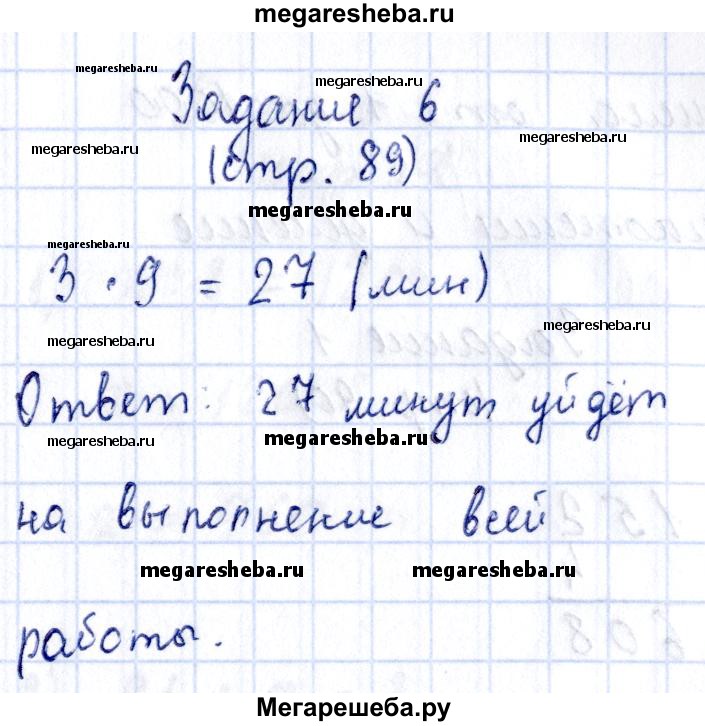 megaresheba.ru
megaresheba.ru
Задание 6
megaresheba.ru
megaresheba.ru
megaresheba.ru
(стр. 89)
megaresheba.ru
megaresheba.ru
3 · 9 = 27 (мин)
megaresheba.ru
megaresheba.ru
Ответ: 27 минут уйдёт
megaresheba.ru
megaresheba.ru
на выполнение всей
megaresheba.ru
megaresheba.ru
работы.
Мегарешеба.ру